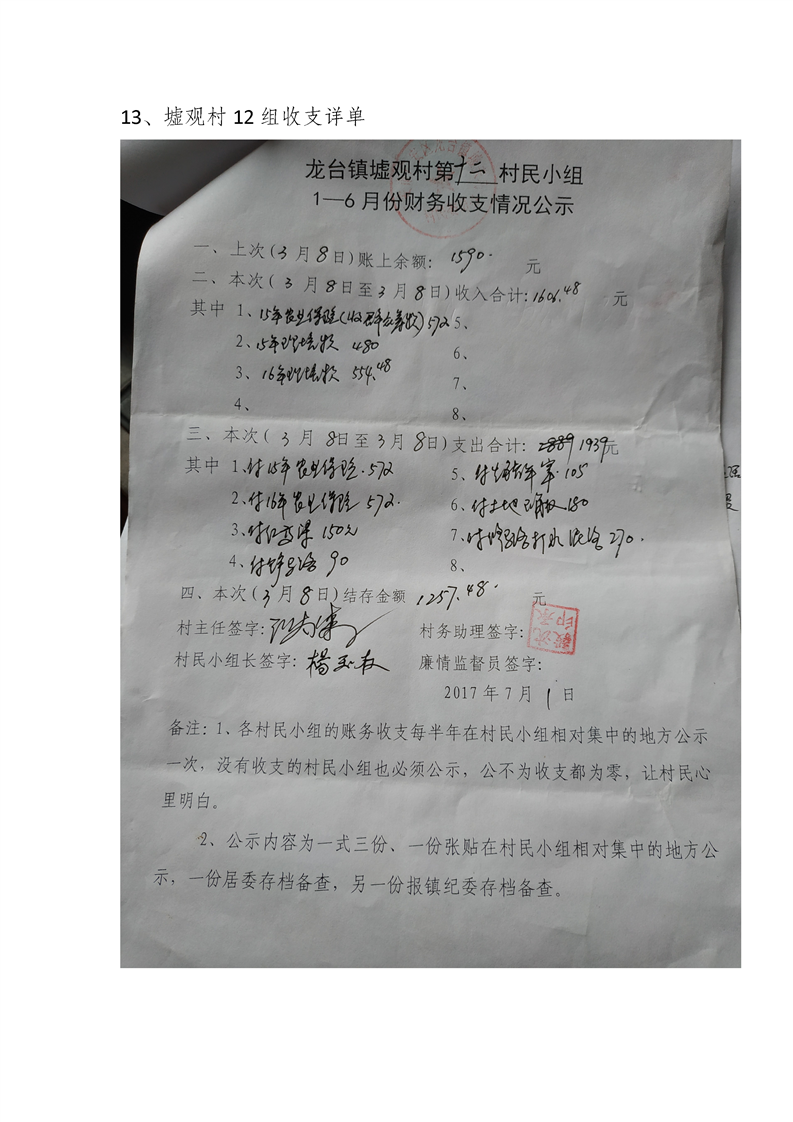 13、墟观村 12 组收支详单
龙台镇墟观村第十二村民小组
1—6 月份财务收支情况公示
一、上次(3月8日)账上余额：1590. 元
二、本次( 3 月 8日至3月8日)收入合计:1606.48 元
其中 1、15年农业保险(收群众筹款)572 5、
2、15年 款 480 6、
3、16年 款 554.48 7、
4、 8、
三、本次( 3 月 8日至3月8日)支出合计：2889 1939元
其中 1、付15年农业保险.572 5、付 105
2、付16年农业保险 572. 6、付土地确权180
3、付红高粱 150元 7、付 270.
4、付 90 8、
四、本次(3月8日)结存金额 1257.48. 元
村主任签字: 村务助理签字:
村民小组长签字: 杨玉友 廉情监督员签字:
2017 年 7 月 1 日
备注：1、各村民小组的账务收支每半年在村民小组相对集中的地方公示
一次，没有收支的村民小组也必须公示，公不为收支都为零，让村民心
里明白。
2、公示内容为一式三份、一份张贴在村民小组相对集中的地方公
示，一份居委存档备查，另一份报镇纪委存档备查。